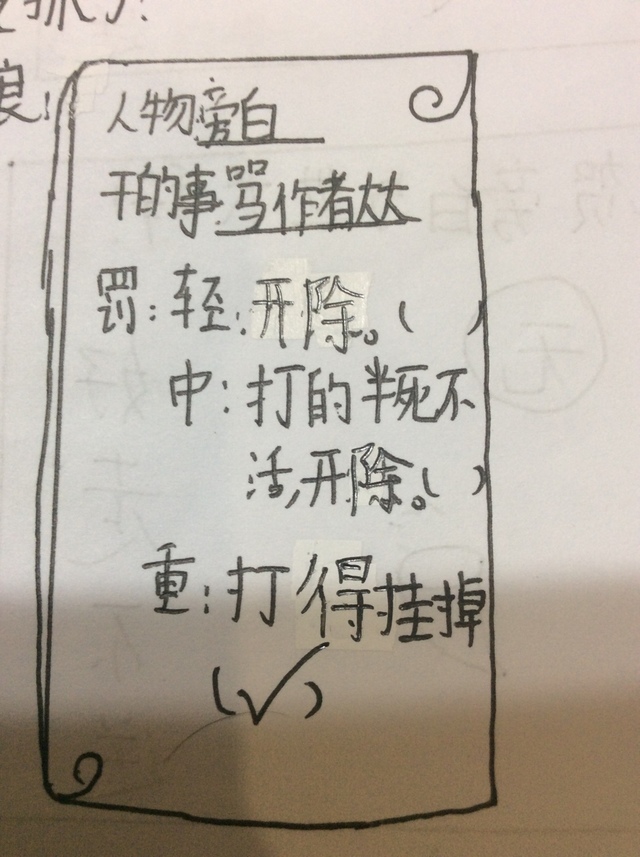 人物旁白
干的事骂作者大大
罚:轻:开除。( )
中:打的半死不
活,开除。( )
重:打得挂掉
(✓)